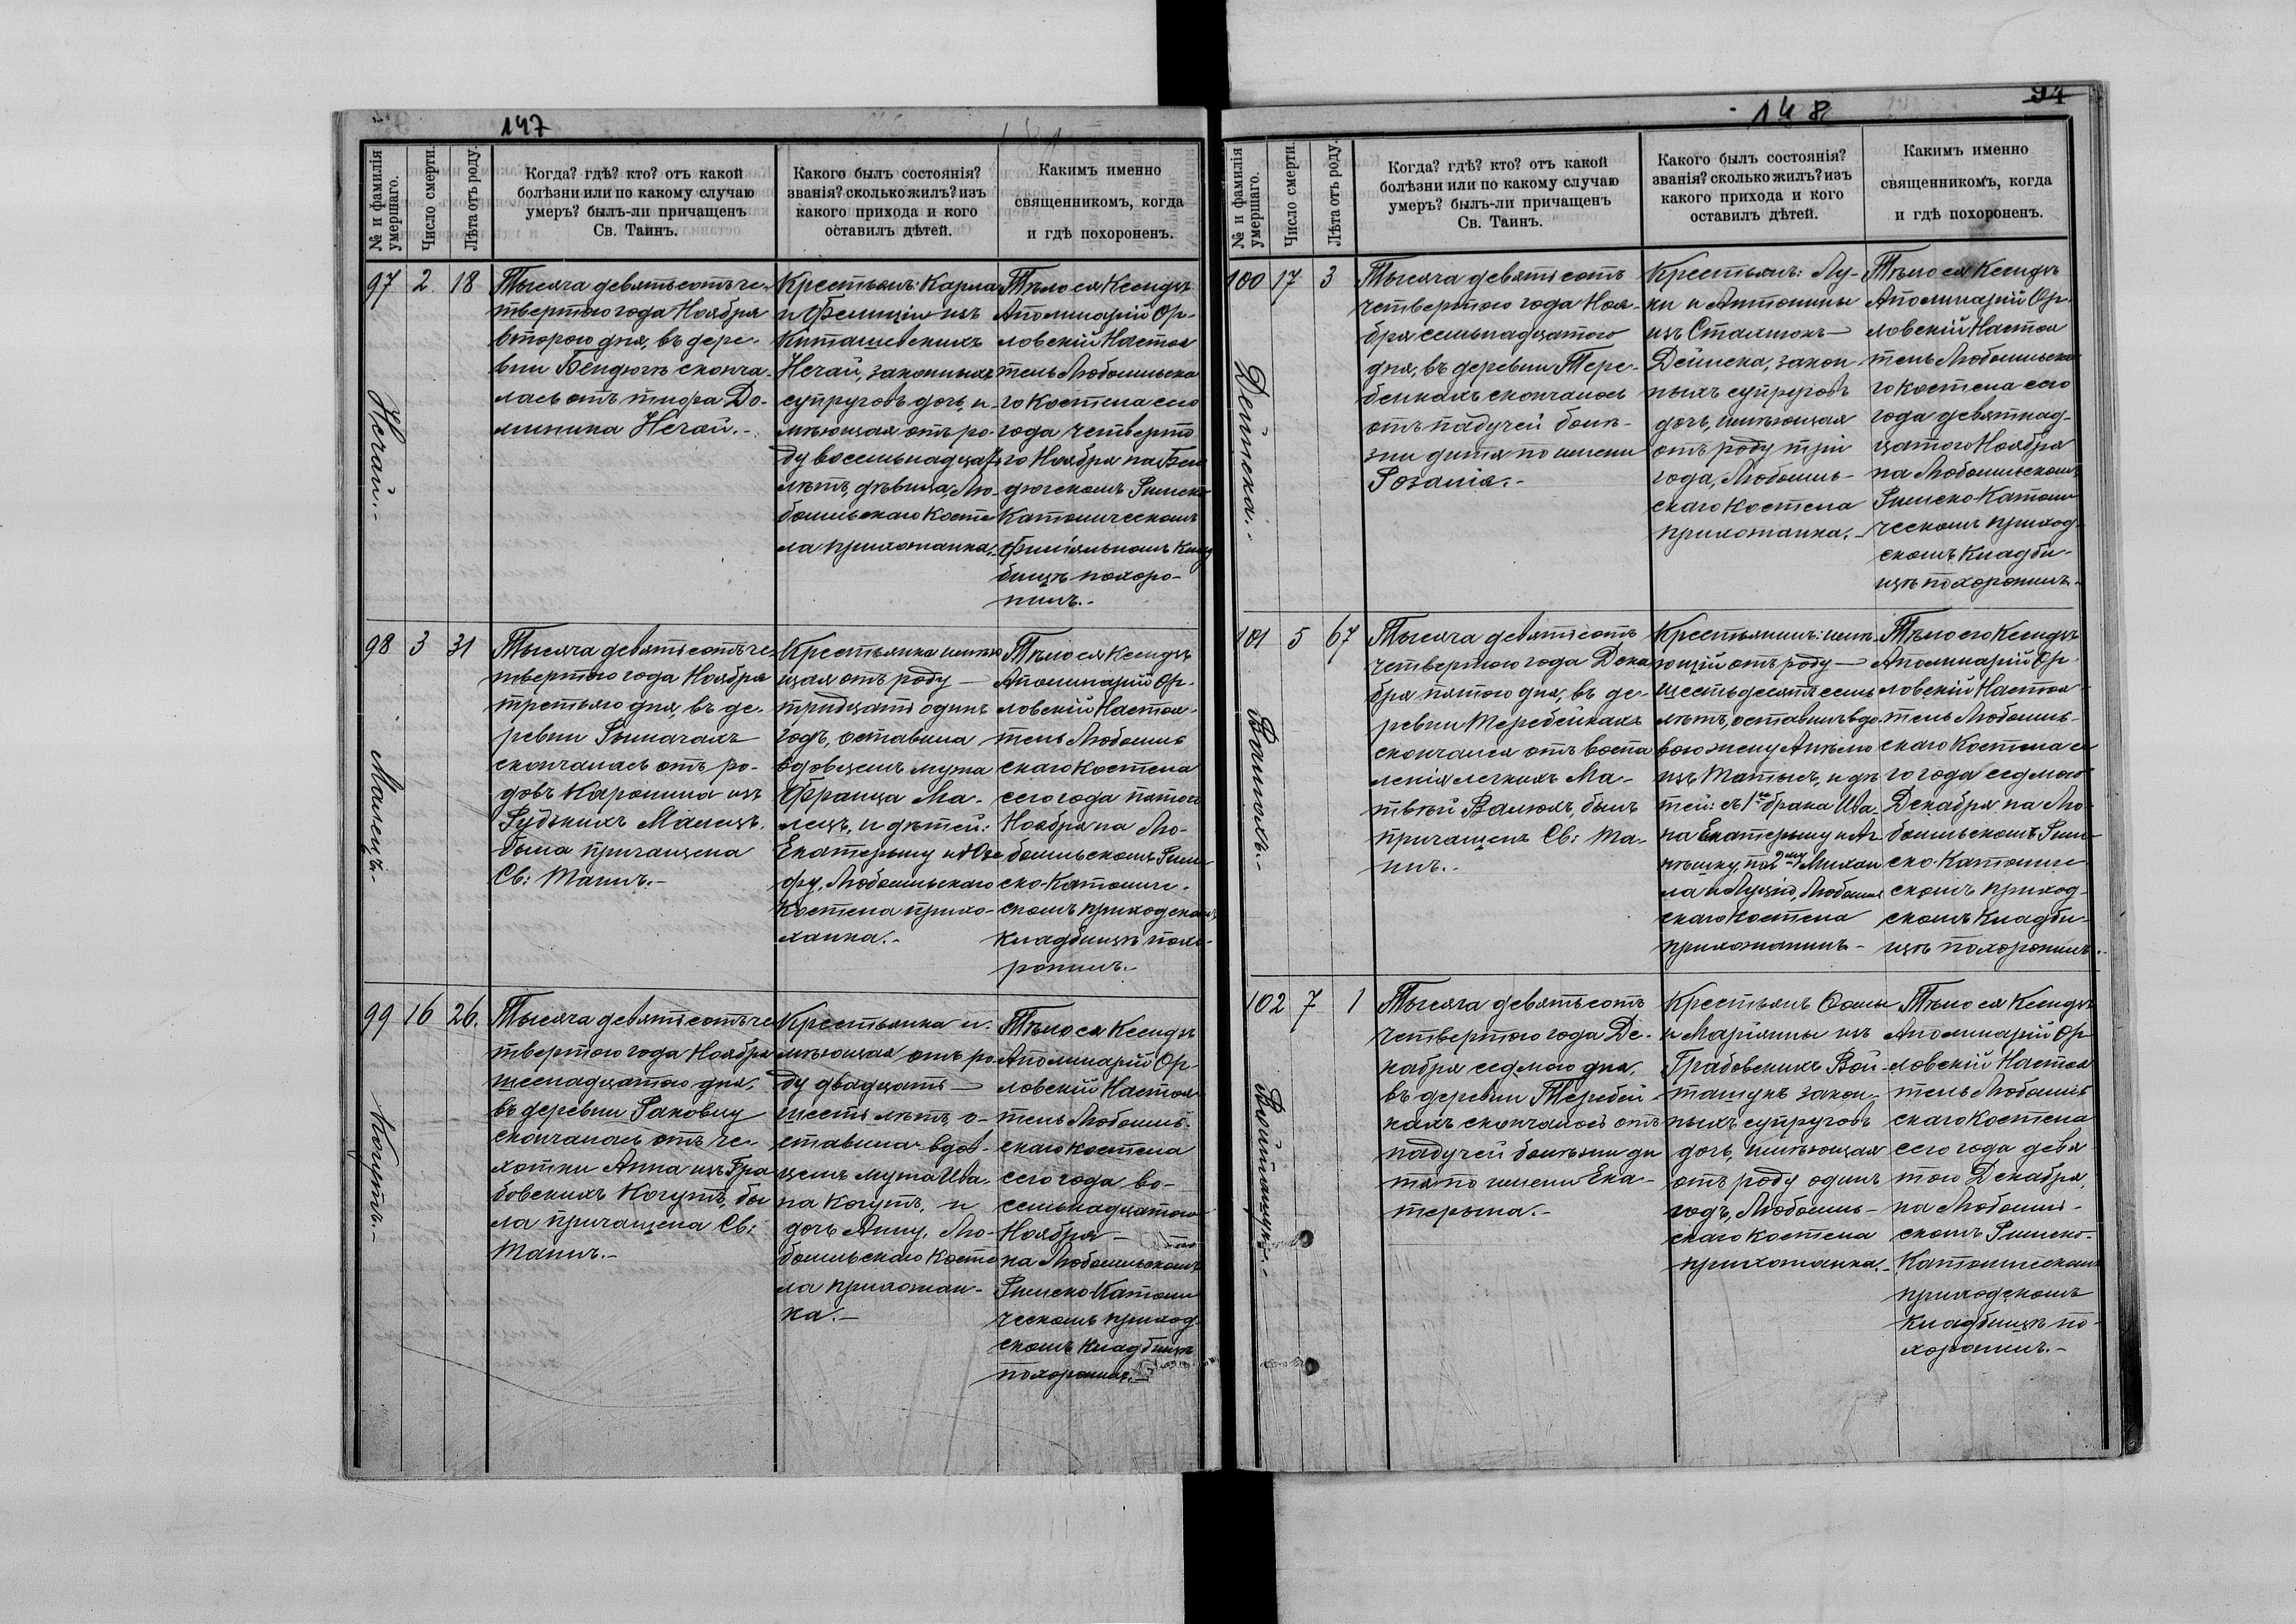 147
№ и фамилія
умершаго.
Число смерти.
Лѣта отъ роду.
Когда? гдѣ? кто? отъ какой
болѣзни или по какому случаю
умеръ? былъ-ли причащенъ
Св. Таинъ.
Какого былъ состоянія?
званія? сколько жилъ? изъ
какого прихода и кого
оставилъ дѣтей.
Какимъ именно
священникомъ, когда
и гдѣ похороненъ.
97
Нечай.-
2
18
Тысяча девятьсотъ че-
твертого года Ноября
второго дня, въ дере-
вни Бендюгѣ сконча-
лась отъ тифа До-
миника Нечай.-
Крестьянъ: Карла
и Фелиціи изъ
Киташевскихъ
Нечай, законныхъ
супруговъ дочь, и-
мѣющая отъ ро-
ду восемьнадцать
лѣтъ, дѣвица, Лю-
бомльскаго Косте
ла прихожанка.-
Тѣло ея Ксендзъ
Аполинарій Ор-
ловскій Настоя
тель Любомльска
го Костела сего
года четверто
го Ноября на Бен
дюгскомъ Римско
Католическомъ
Филіяльномъ Клад
бищѣ похоро-
нилъ.-
98
Малецъ.-
3
31
Тысяча девятьсотъ че-
твертого года Ноября
третьяго дня, въ де-
ревни Рымачахъ
скончалась отъ ро-
довъ Каролина изъ
Рудзкихъ Малецъ,
была причащена
Св: Таинъ.-
Крестьянка имѣю
щая отъ роду —
тридцать одинъ
годъ, оставила
вдовцемъ мужа
Франца Ма-
лецъ, и дѣтей:
Екатерину и Юзе
фу, Любомльскаго
Костела прихо-
жанка.-
Тѣло ея Ксендзъ
Аполинарій Ор-
ловскій Настоя-
тель Любомль
скаго Костела
сего года пятого
Ноября на Лю-
бомльскомъ Рим-
ско-Католиче-
скомъ приходскомъ
кладбищѣ похо-
ронилъ.-
99
Когутъ.-
16
26.
Тысяча девятьсотъ че
твертого года Ноября
шеснадцатого дня,
въ деревни Раковцу
скончалась отъ че-
хотки Анна изъ Гра
бовскихъ Когутъ, бы
ла причащена Св:
Таинъ.-
Крестьянка и-
мѣющая отъ ро-
ду двадцать —
шесть лѣтъ, о-
ставила вдов-
цемъ мужа Ива-
на Когутъ, и
дочь Анну, Лю-
бомльскаго Косте
ла прихожан-
ка.—
Тѣло ея Ксендзъ
Аполинарій Ор-
ловскій Настоя
тель Любомль-
скаго Костела
сего года во-
семьнадцатого
Ноября —
на Любомльскомъ
Римско Католи
ческомъ приход-
скомъ Кладбищѣ
похоронилъ.—
148
94
№ и фамилія
умершаго.
Число смерти.
Лѣта отъ роду.
Когда? гдѣ? кто? отъ какой
болѣзни или по какому случаю
умеръ? былъ-ли причащенъ
Св. Таинъ.
Какого былъ состоянія?
званія? сколько жилъ? изъ
какого прихода и кого
оставилъ дѣтей.
Какимъ именно
священникомъ, когда
и гдѣ похороненъ.
100
Дейнека.-
17
3
Тысяча девятьсотъ
четвертого года Ноя-
бря семьнадцатого
дня, въ деревни Тере-
бейкахъ скончалось
отъ падучей болѣ-
зни дитя по имени
Розалія.-
Крестьянъ: Лу-
ки и Антонины
изъ —
Дейнека, закон-
ныхъ супруговъ
дочь, имѣющая
отъ роду три
года, Любомль-
скаго Костела
прихожанка.-
Тѣло ея Ксендзъ
Аполинарій Ор-
ловскій Настоя
тель Любомльска
го Костела сего
года девятнад-
цатого Ноября
на Любомльскомъ
Римско-Католи
ческомъ приход-
скомъ Кладби-
щѣ похоронилъ.-
101
Валюхъ.-
5
67
Тысяча девятьсотъ
четвертого года Дека
бря пятого дня, въ де-
ревни Теребейкахъ
скончался отъ воспа
ленія легкихъ Ма-
твѣй Валюхъ, былъ
причащенъ Св: Та-
инъ.-
Крестьянинъ: имѣ-
ющій отъ роду —
шестьдесятъ семь
лѣтъ, оставилъ вдо-
вою жену Анѣлю
изъ и дѣ
тей: съ 1го брака Ива-
на Екатерину и Аг-
нѣшку, по 2му Михаи
ла и Луцію, Любомль
скаго Костела
прихожанинъ.-
Тѣло его Ксендзъ
Аполинарій Ор-
ловскій Настоя-
тель Любомль-
скаго Костела се
го года седмого
Декабря на Лю-
бомльскомъ Рим-
ско-Католиче-
скомъ приход-
скомъ Кладби-
щѣ похоронилъ.-
102
Войташукъ.-
7
1
Тысяча девятьсотъ
четвертого года Де-
кабря седмого дня,
въ деревни Теребей-
кахъ скончалось отъ
падучей болѣзни ди
тя по имени Ека-
терина.-
Крестьянъ Ѳомы
и Маріянны изъ
Грабовскихъ Вой-
ташукъ закон-
ныхъ супруговъ
дочь, имѣющая
отъ роду одинъ
годъ, Любомль-
скаго Костела
прихожанка.-
Тѣло ея Ксендзъ
Аполинарій Ор-
ловскій Настоя
тель Любомль
скаго Костела
сего года девя
того Декабря,
на Любомль-
скомъ Римско-
Католическомъ
приходскомъ
Кладбищѣ по-
хоронилъ.-